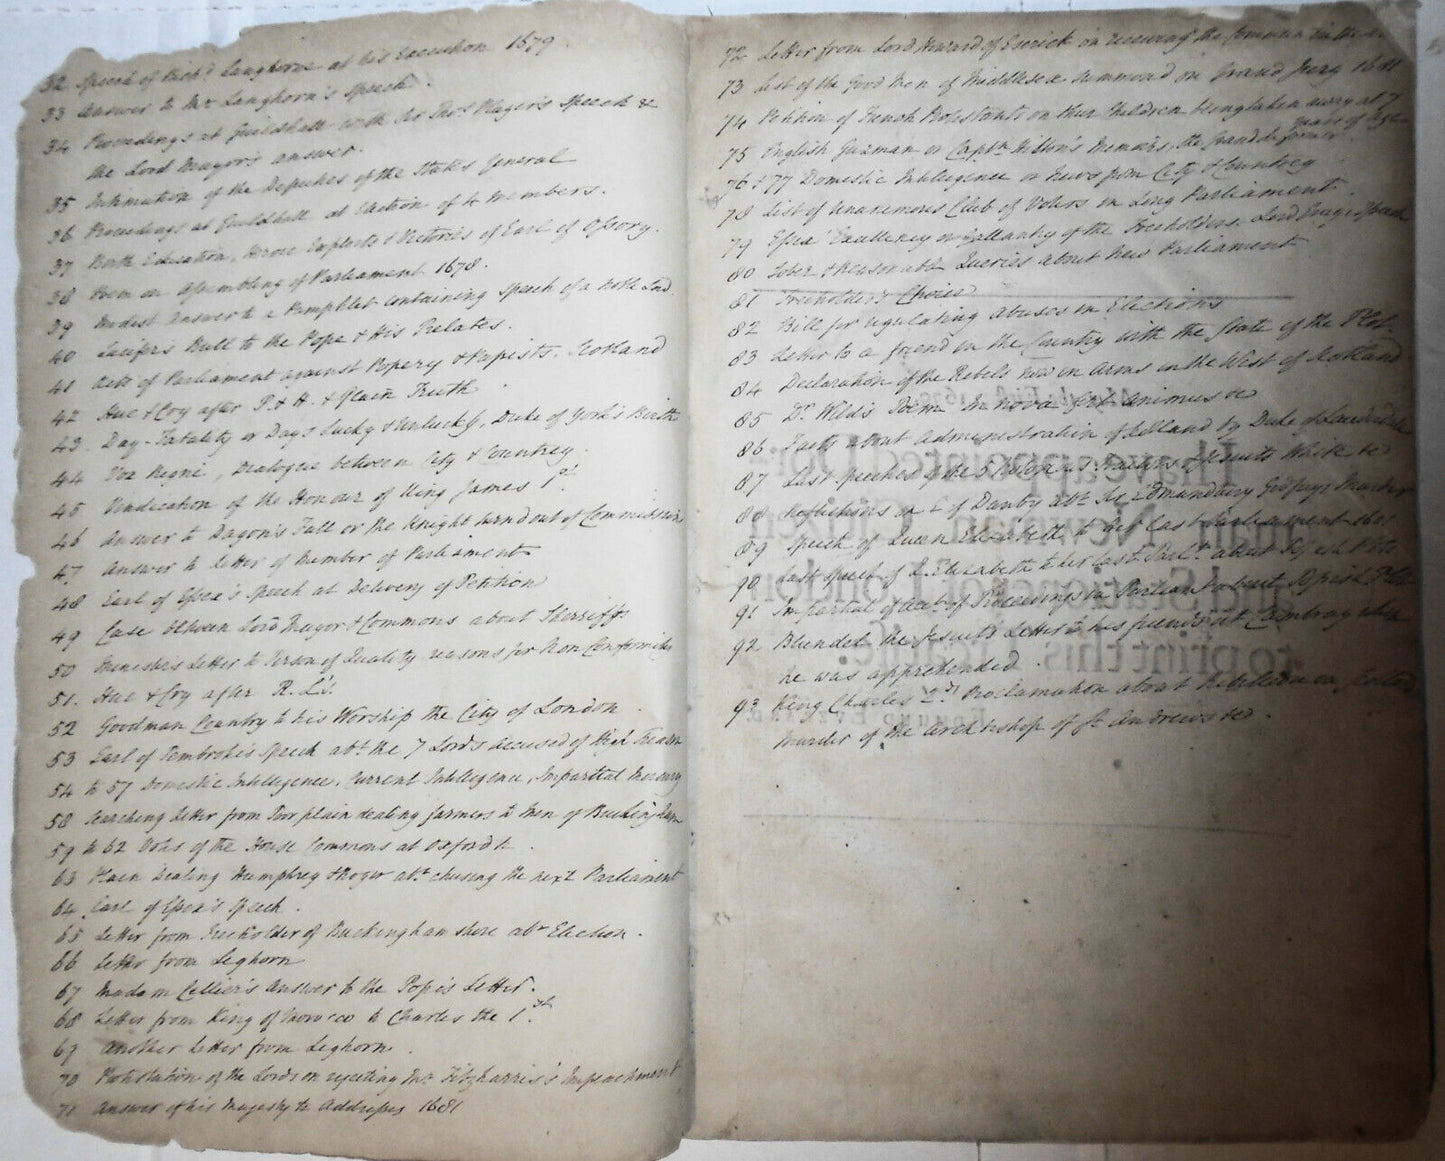 32 Speech of Rich.d Langhorne at his Execution 1679.
33 Answer to Mr Langhorn's Speech.
34 Proceedings at Guildhall with Sir Tho.s Player's Speech &
the Lord Mayor's answer.
35 Intimation of the Deputies of the States General
36 Proceedings at Guildhall at Election of 4 Members.
37 Birth Education, Heroic Exploits & Victories of Earl of Ossory.
38 Poem on Assembling of Parliament 1678.
39 Modest Answer to a Pamphlet containing Speech of a Noble Lord
40 Lucifer's Bull to the Pope & His Prelates.
41 Acts of Parliament against Popery & Papists. Scotland
42 Hue & Cry after P. & H. & Plain Truth
43. Day-Fatality or Days Lucky & Unlucky, Duke of York's Birth
44 Vox Regni, Dialogue between City & Country.
45 Vindication of the Honour of King James 1st.
46 Answer to Dagon's Fall or the Knight turnd out of Commission
47 Answer to Letter of Member of Parliament
48 Earl of Essex's Speech at Delivery of Petition
49 Case between Lord Mayor & Commons about Sherriffs
50 Ministers Letter to Person of Quality reasons for Non Conformity
51. Hue & Cry after R. L's.
52 Goodman Country to his Worship the City of London.
53 Earl of Pembroke's Speech abt. the 7 Lords accused of High Treason
54 to 57 Domestic Intelligence, Current Intelligence, Impartial Mercury
58 Searching Letter from Poor plain dealing farmers to Men of Buckingham
59 to 62 Votes of the House Commons at Oxford &.
63 Plain Dealing Humphrey & Roger abt. chusing the next Parliament
64 Earl of Essex's Speech.
65 Letter from Freeholder of Buckinghamshire abt Election.
66 Letter from Leghorn
67 Madam Cellier's Answer to the Pope's Letter.
68 Letter from King of Morocco to Charles the 1.st
69 Another Letter from Leghorn.
70 Protestation of the Lords on rejecting Mr Fitzharris's Impeachment
71 Answer of his Majesty to Addresses 1681
72 Letter from Lord Howard of Escrick on receiving the Communion in the
73 List of the Good Men of Middlesex summond on Grand Jury 1681
74 Petition of French Protestants on their Children being taken away at 7
years of Age
75 English Guzman or Captn Hilton's Memoirs, the Grand Informer
76 & 77 Domestic Intelligence or News from City & Country
78 List of Unanimous Club of Voters in Long Parliament.
79 Essex' Excellency or Gallantry of the Freeholders. Lord Gray's Speech
80 Sober & Reasonable Queries about New Parliament
81 Freeholder's Choice
82 Bill for regulating Abuses in Elections
83 Letter to a friend in the Country with the State of the Plot.
84 Declaration of the Rebels now in Arms in the West of Scotland
85 Dr. Wild's Poem In nova fert animus &c
86 Facts about Administration of Scotland by Duke of Lauderdale
87 Last Speeches of the 5 Notorious Traitors & Jesuits White &c
88 Reflections on E of Danby abt. Sr Edmundbury Godfrey's Murder
89 Speech of Queen Elizabeth to her Last Parliament 1601
90 Last Speech of Q. Elizabeth to her Last Parlt. about Popish Plots
91 Impartial Acct. of Proceedings in Parliant about Popish Plot
92 Blundel the Jesuit's Letter to his friends at Cambray when
he was apprehended.
93 King Charles 2nd Proclamation about Rebellion in Scotland
Murder of the Archbishop of St. Andrews &c.